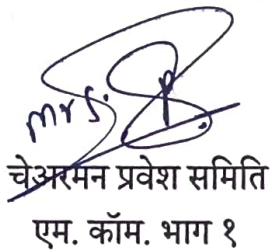 Mrs.
चेअरमन प्रवेश समिति
एम. कॉम. भाग १